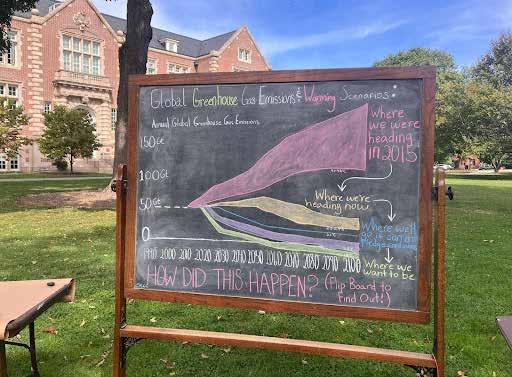 Global Greenhouse Gas Emissions & Warming Scenarios:
Annual Global Greenhouse Gas Emissions
150 Gt
100 Gt
50 Gt
0
1990 2000 2010 2020 2030 2040 2050 2060 2070 2080 2090 2100
Where
we were
heading
in 2015
Where we're
heading now
Where we'll
go if
Where we
want to be
HOW DID THIS HAPPEN? (Flip Board to
Find Out!)